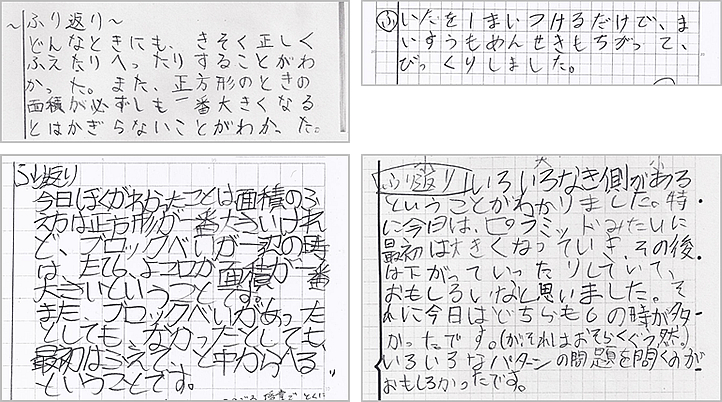 ～ふり返り～
どんなときにも、きそく正しく
ふえたりへったりすることがわ
かった。また、正方形のときの
面積が必ずしも一番大きくなる
とはかぎらないことがわかった。
ふ いたを1まいつけるだけで、ま
いすうもめんせきもちがって、
びっくりしました。
ふり返り
今日ぼくがわかったことは面積のふ
え方は正方形が一番大きいけれ
ど、ブロックべいが一
の時
は、たて6、よこ
が面積が一番
大きいということです。
また、ブロックべいがあった
としても、なかったとしても、
最初はふえて、と中からへる
ということです。
ふり返り いろいろなき側がある
ということがわかりました。特
に今日は、ピラミッドみたいに
最初は大きくなっていき、その後
は下がっていったりしていて、
おもしろいなと思いました。そ
れに今日はどちらも6の時が
かったです。(がそれはおそらくぐう然。)
いろいろなパターンの問題を問くのが
おもしろかったです。